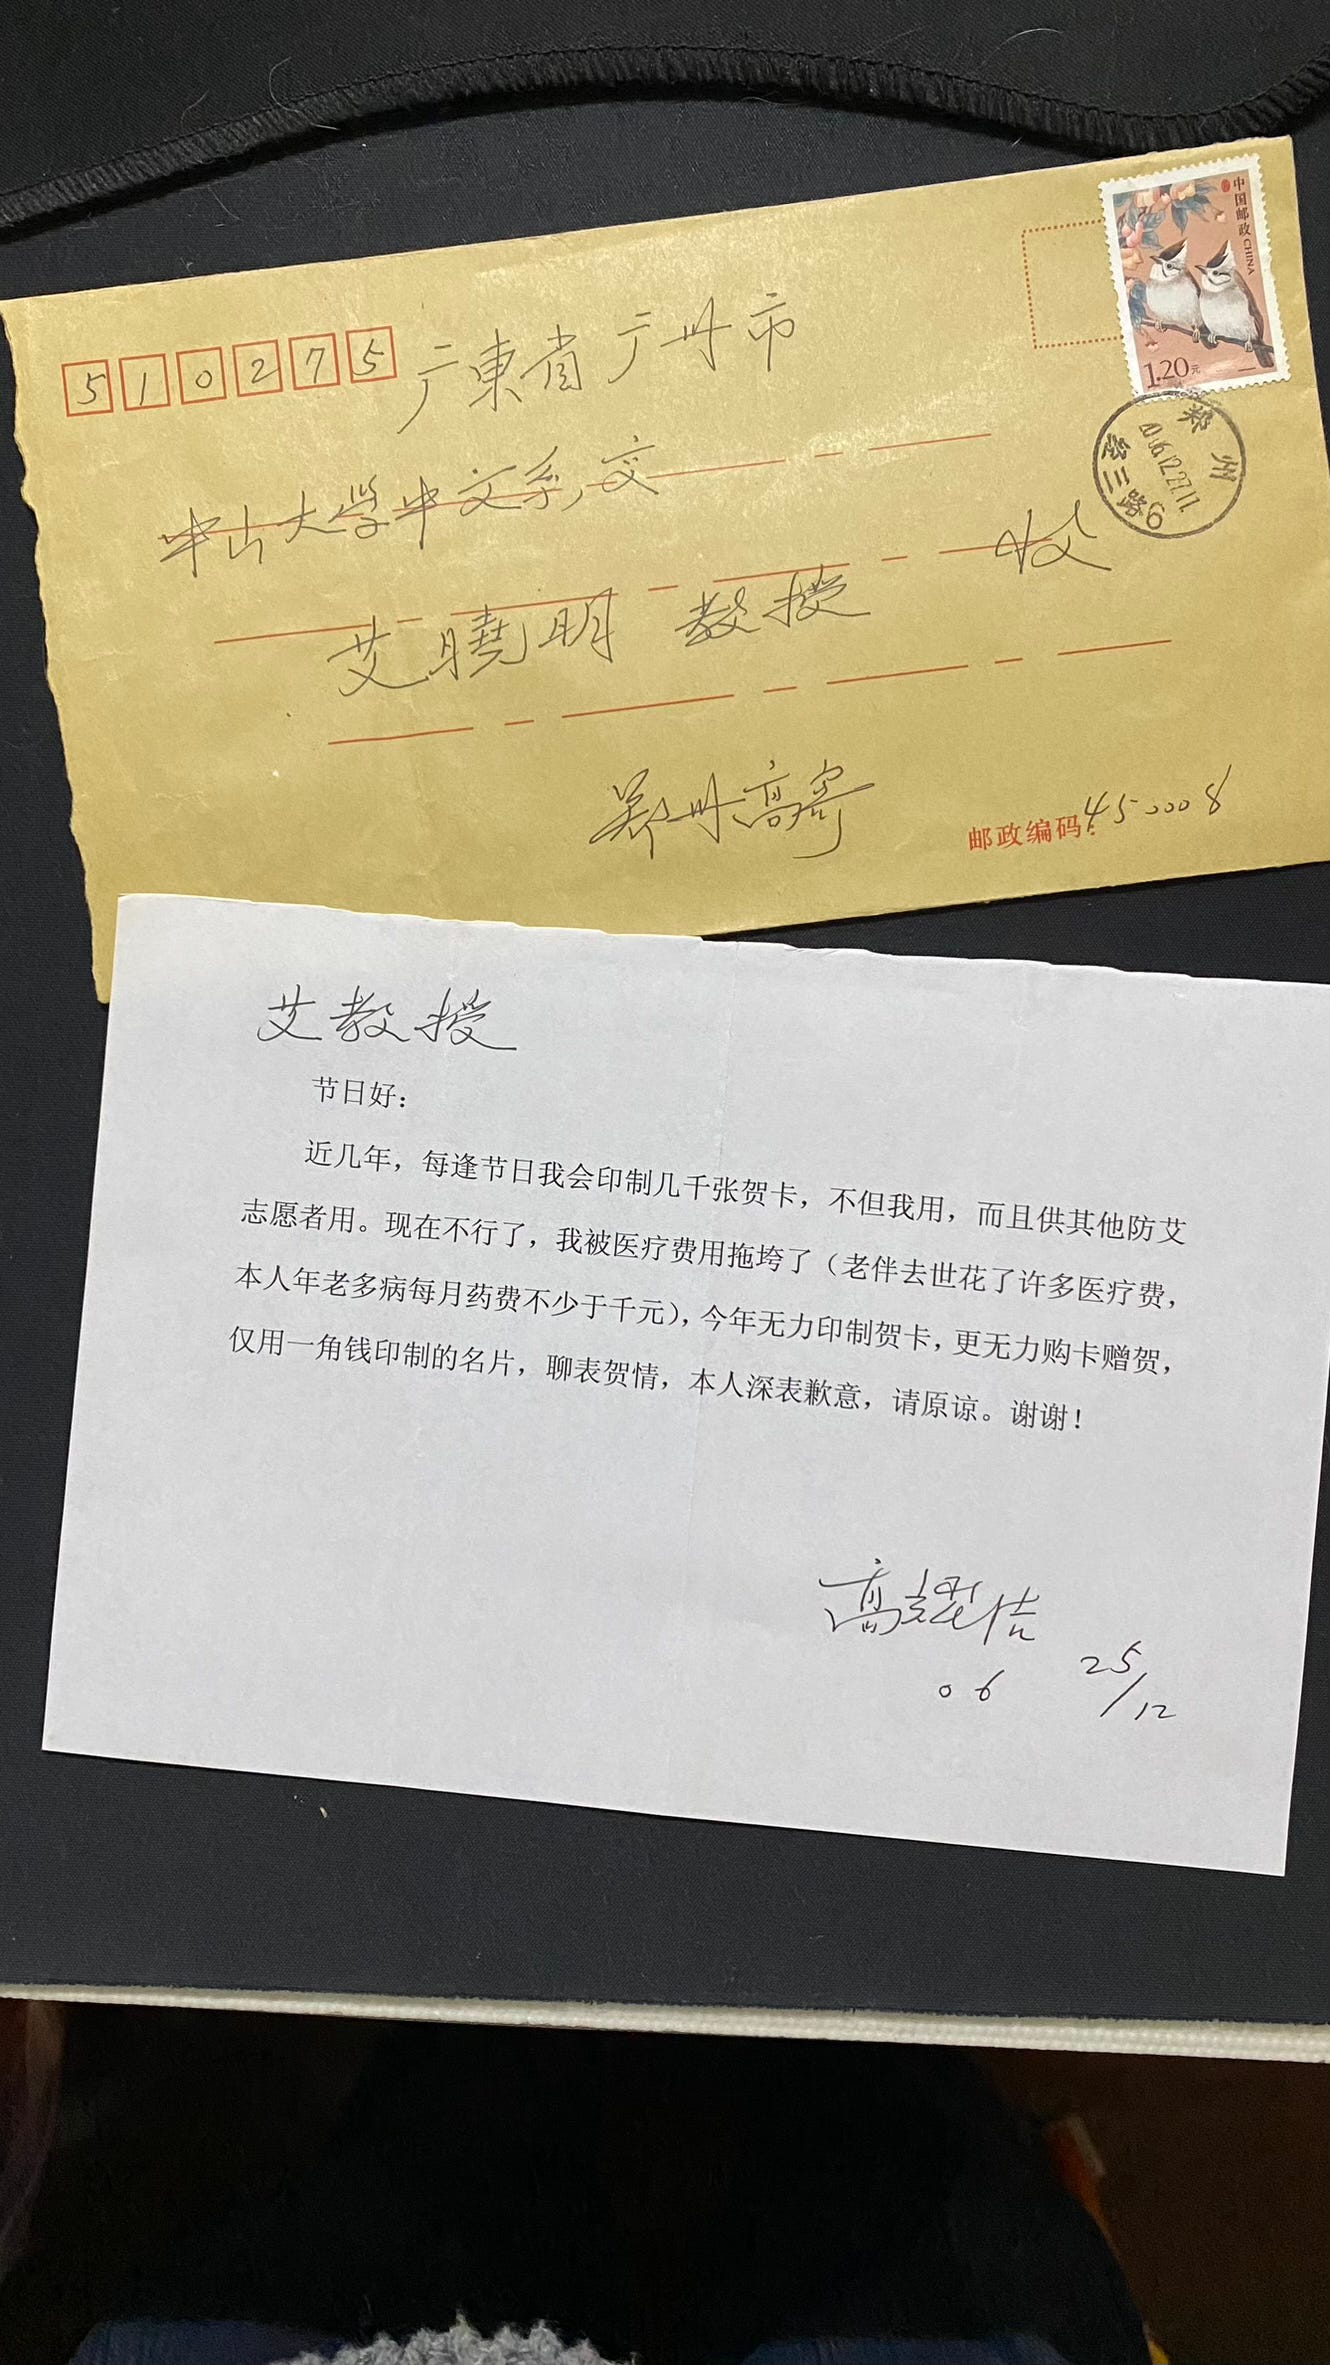 中国邮政 CHINA
1.20元
郑州
2006.12.27.11
经三路6
510275
广東省广州市
中山大学中文系,交
艾曉明 教授 收
郑州高寄
邮政编码:450008
艾教授
节日好:
近几年,每逢节日我会印制几千张贺卡,不但我用,而且供其他防艾
志愿者用。现在不行了,我被医疗费用拖垮了(老伴去世花了许多医疗费,
本人年老多病每月药费不少于千元),今年无力印制贺卡,更无力购卡赠贺,
仅用一角钱印制的名片,聊表贺情,本人深表歉意,请原谅。谢谢!
高耀洁
06 25/12